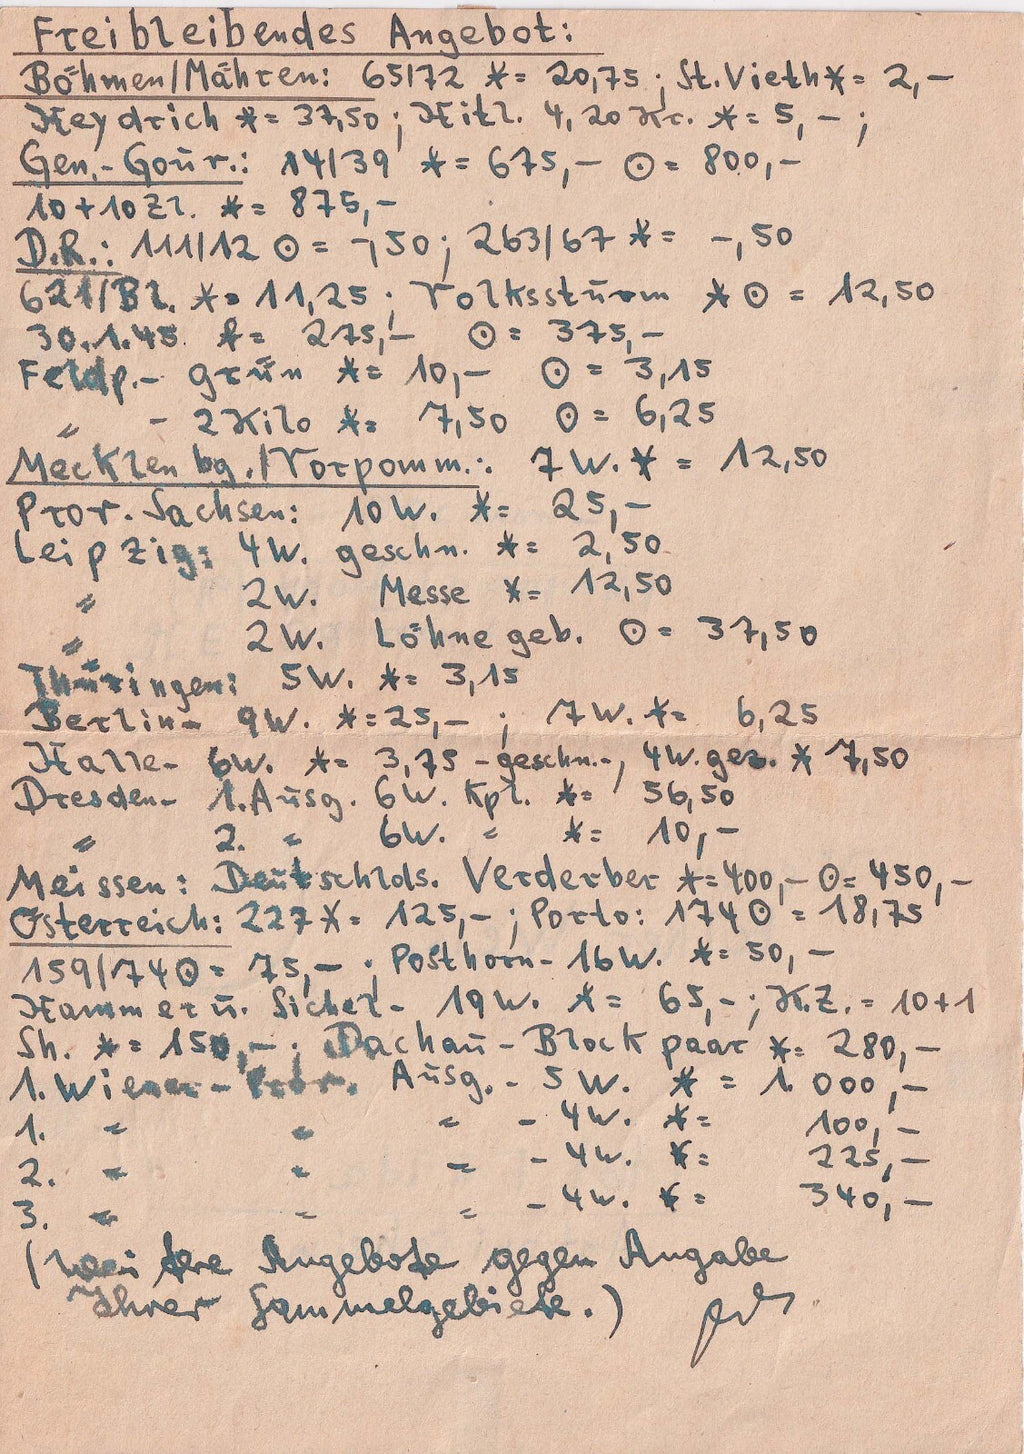 Freibleibendes Angebot:
Böhmen/Mähren: 65/72 *= 20,75; St. Vieth*= 2,—
Heydrich *= 37,50; Hitl. 4,20 Kr. *= 5,—;
Gen.-Gour.: 14/39 *= 675,— ⊙= 800,—
10+10 Zl. *= 875,—
D.R.: 111/12 ⊙= -,50; 263/67 *= -,50
621/Bl. *= 11,25; Volkssturm *⊙ = 12,50
30.1.45 *= 275,— ⊙= 375,—
Feldp.- grün *= 10,— ⊙= 3,15
" - 2 Kilo *= 7,50 ⊙= 6,25
Mecklenbg./Vorpomm.: 7W. *= 12,50
Prov. Sachsen: 10W. *= 25,—
Leipzig: 4W. geschn. *= 2,50
" 2W. Messe *= 12,50
" 2W. Löhne geb. ⊙= 37,50
Thüringen: 5W. *= 3,15
Berlin- 9W. *=25,— ; 7W. *= 6,25
Halle- 6W. *= 3,75 -geschn.-, 4W. gez. * 7,50
Dresden- 1. Ausg. 6W. kpl. *= 56,50
" 2. " 6W. " *= 10,—
Meissen: Deutschlds. Verderber *=400,— ⊙=450,—
Österreich: 227 *= 125,—; Porto: 174⊙ = 18,75
159/74⊙= 75,—; Posthorn- 16W. *= 50,—
Hammer u. Sichel- 19W. *= 65,—; K.Z. = 10+1
Sh. *= 150,—; Dachau-Blockpaar *= 280,—
1. Wiener-Prov. Ausg.- 5W. *= 1.000,—
1. " " " - 4W. *= 100,—
2. " " " - 4W. *= 225,—
3. " " " - 4W. *= 340,—
(weitere Angebote gegen Angabe
Ihrer Sammelgebiete.)